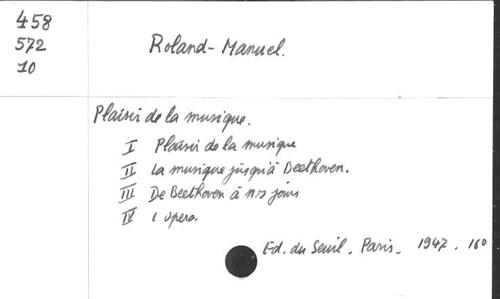 458
572
10
Roland-Manuel.
Plaisir de la musique.
I Plaisir de la musique
II La musique jusqu'à Beethoven.
III De Beethoven à nos jours
IV L'opera.
Ed. du Seuil. Paris. 1947. 16°